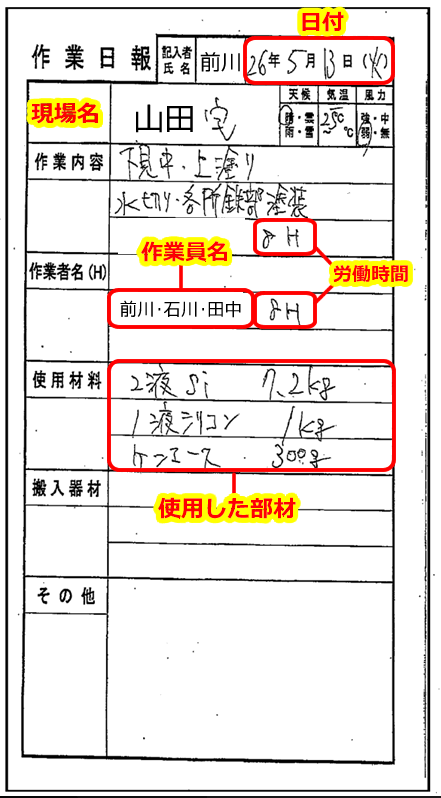 日付
作業日報 記入者氏名 前川 26年5月13日(火)
現場名 山田宅
天候 気温 風力
晴・雲 雨・雪 25℃ ~ ℃ 強・中 弱・無
作業内容 下見中・上塗り
水切り・各所鉄部塗装
8H
作業員名
労働時間
作業者名(H)
前川・石川・田中 8H
使用材料 2液Si 7.2kg
1液シリコン 1kg
ケンエース 300g
搬入器材
使用した部材
その他